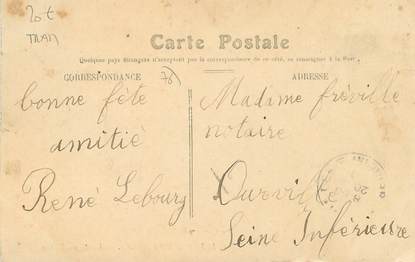 20€
TRAM
Carte Postale
Quelques pays étrangers n'acceptent pas la correspondance de ce côté, se renseigner à la Poste.
CORRESPONDANCE
76
bonne fête
amitié
René Lebourg
ADRESSE
Madame fréville
notaire
Ourville
Seine Inférieure